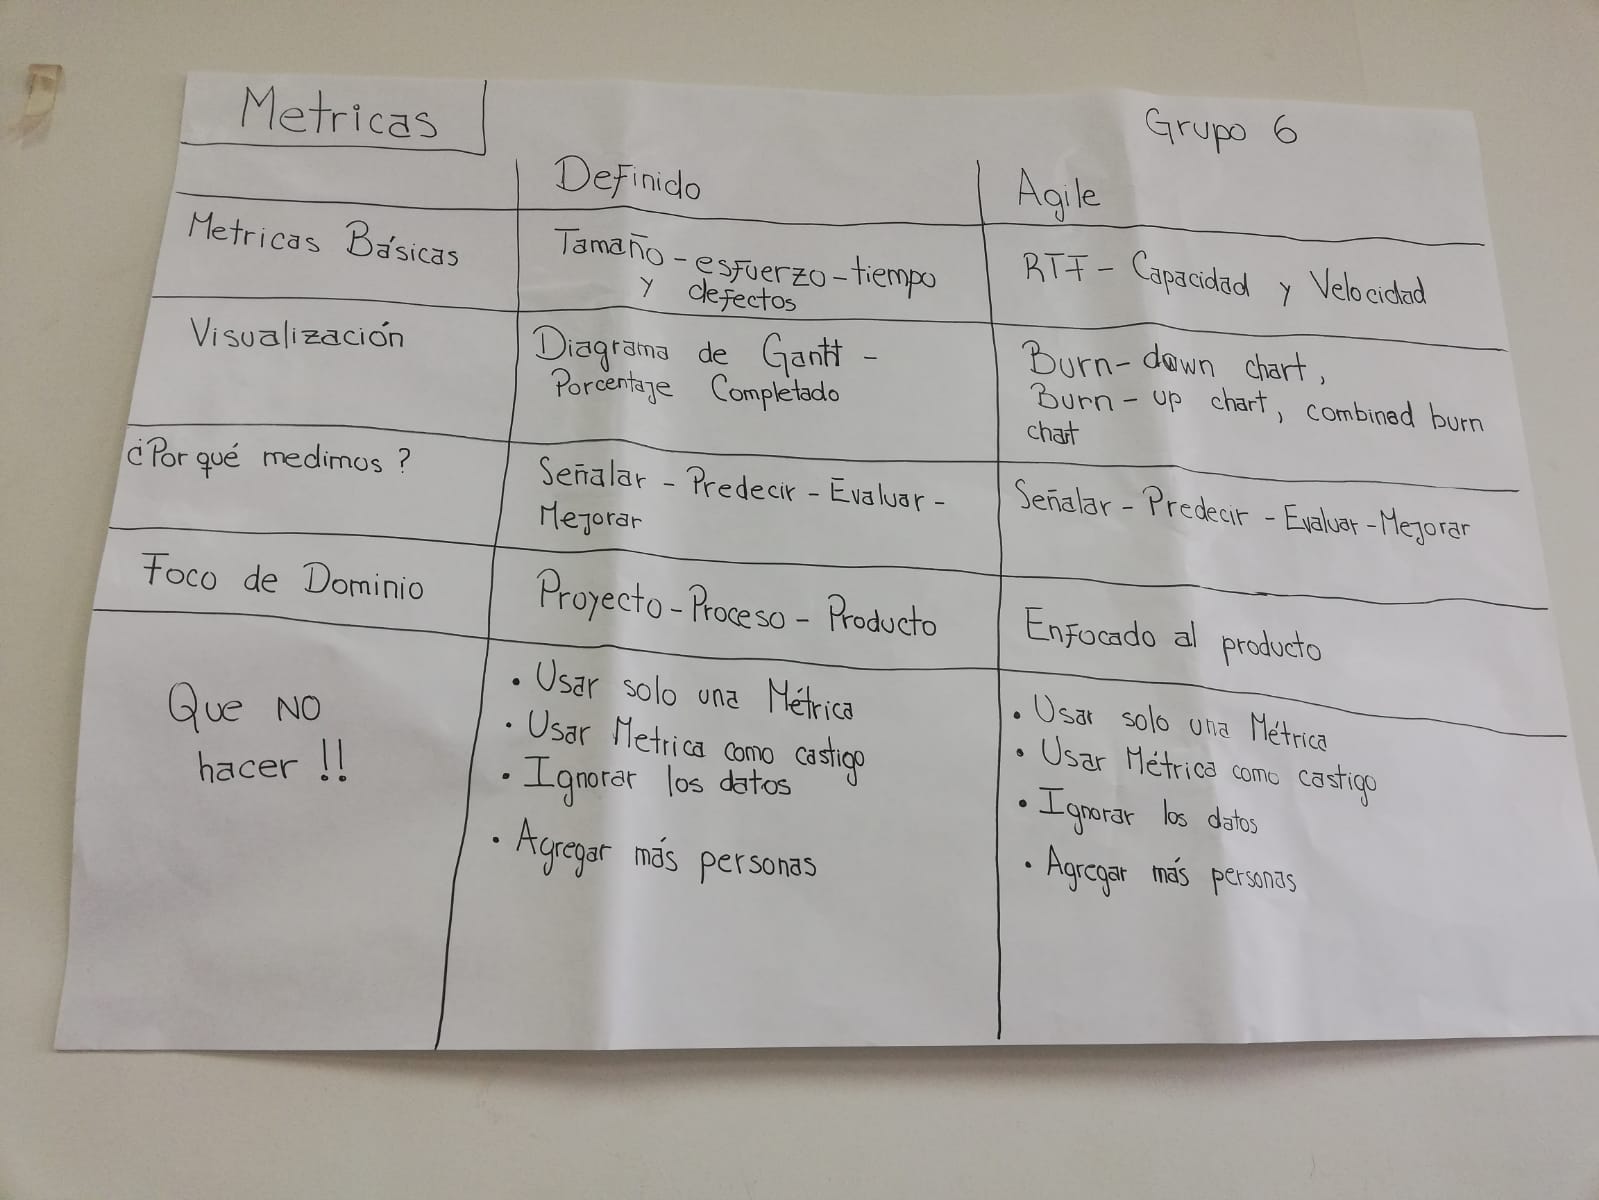 Metricas
Grupo 6
Definido
Agile
Metricas Básicas
Tamaño - esfuerzo - tiempo
y defectos
RTF - Capacidad y Velocidad
Visualización
Diagrama de Gantt -
Porcentaje Completado
Burn-down chart,
Burn-up chart, combined burn
chart
¿Por qué medimos?
Señalar - Predecir - Evaluar -
Mejorar
Señalar - Predecir - Evaluar - Mejorar
Foco de Dominio
Proyecto - Proceso - Producto
Enfocado al producto
Que NO
hacer !!
• Usar solo una Métrica
• Usar Metrica como castigo
• Ignorar los datos
• Agregar más personas
• Usar solo una Métrica
• Usar Métrica como castigo
• Ignorar los datos
• Agregar más personas